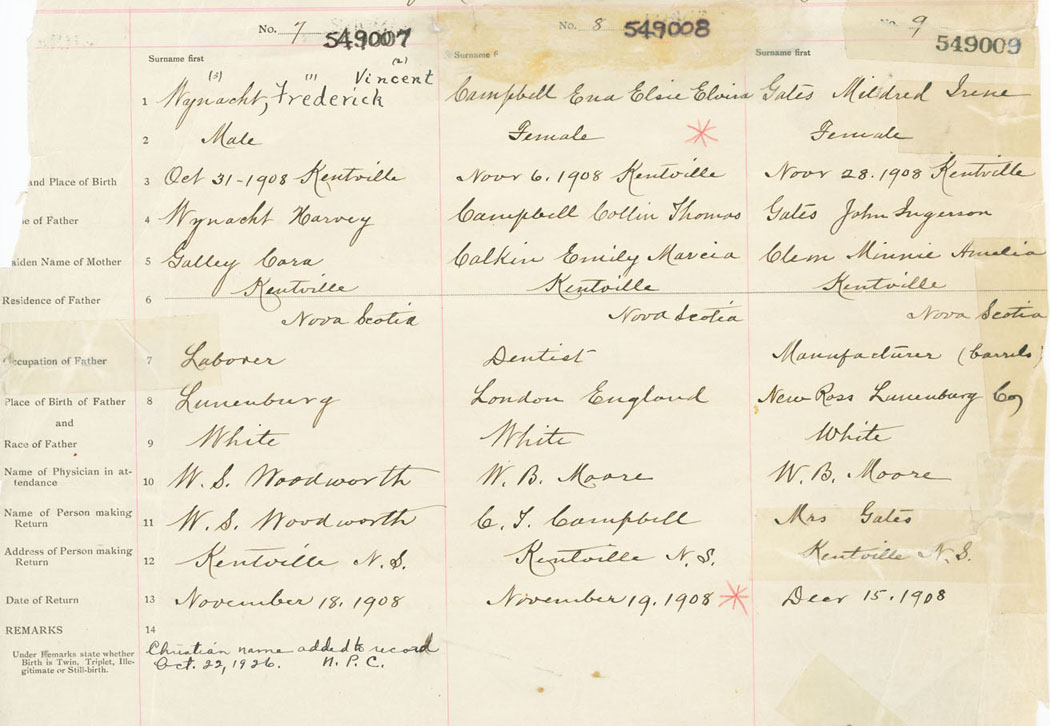 No. 7 549007 No. 8 549008 No. 9 549009
Surname first Surname Surname first
(3) (1) (2)
1 Wynacht, Frederick Vincent Campbell Ena Elsie Elvira Gates Mildred Irene
2 Male Female Female
and Place of Birth 3 Oct 31-1908 Kentville Novr 6. 1908 Kentville Novr 28. 1908 Kentville
e of Father 4 Wynacht Harvey Campbell Collin Thomas Gates John Ingerson
aiden Name of Mother 5 Galley Cora Calkin Emily Marcia Clem Minnie Amelia
Residence of Father 6 Kentville Kentville Kentville
Nova Scotia Nova Scotia Nova Scotia
ccupation of Father 7 Laborer Dentist Manufacturer (barrels)
Place of Birth of Father 8 Lunenburg London England New Ross Lunenburg Co,
and
Race of Father 9 White White White
Name of Physician in at-
tendance 10 W. S. Woodworth W. B. Moore W. B. Moore
Name of Person making
Return 11 W. S. Woodworth C. T. Campbell Mrs Gates
Address of Person making
Return 12 Kentville N.S. Kentville N.S. Kentville N.S.
Date of Return 13 November 18. 1908 November 19. 1908 Decr 15. 1908
REMARKS 14
Under Remarks state whether
Birth is Twin, Triplet, Ille-
gitimate or Still-birth.
Christian name added to record
Oct. 22, 1926. N.P.C.